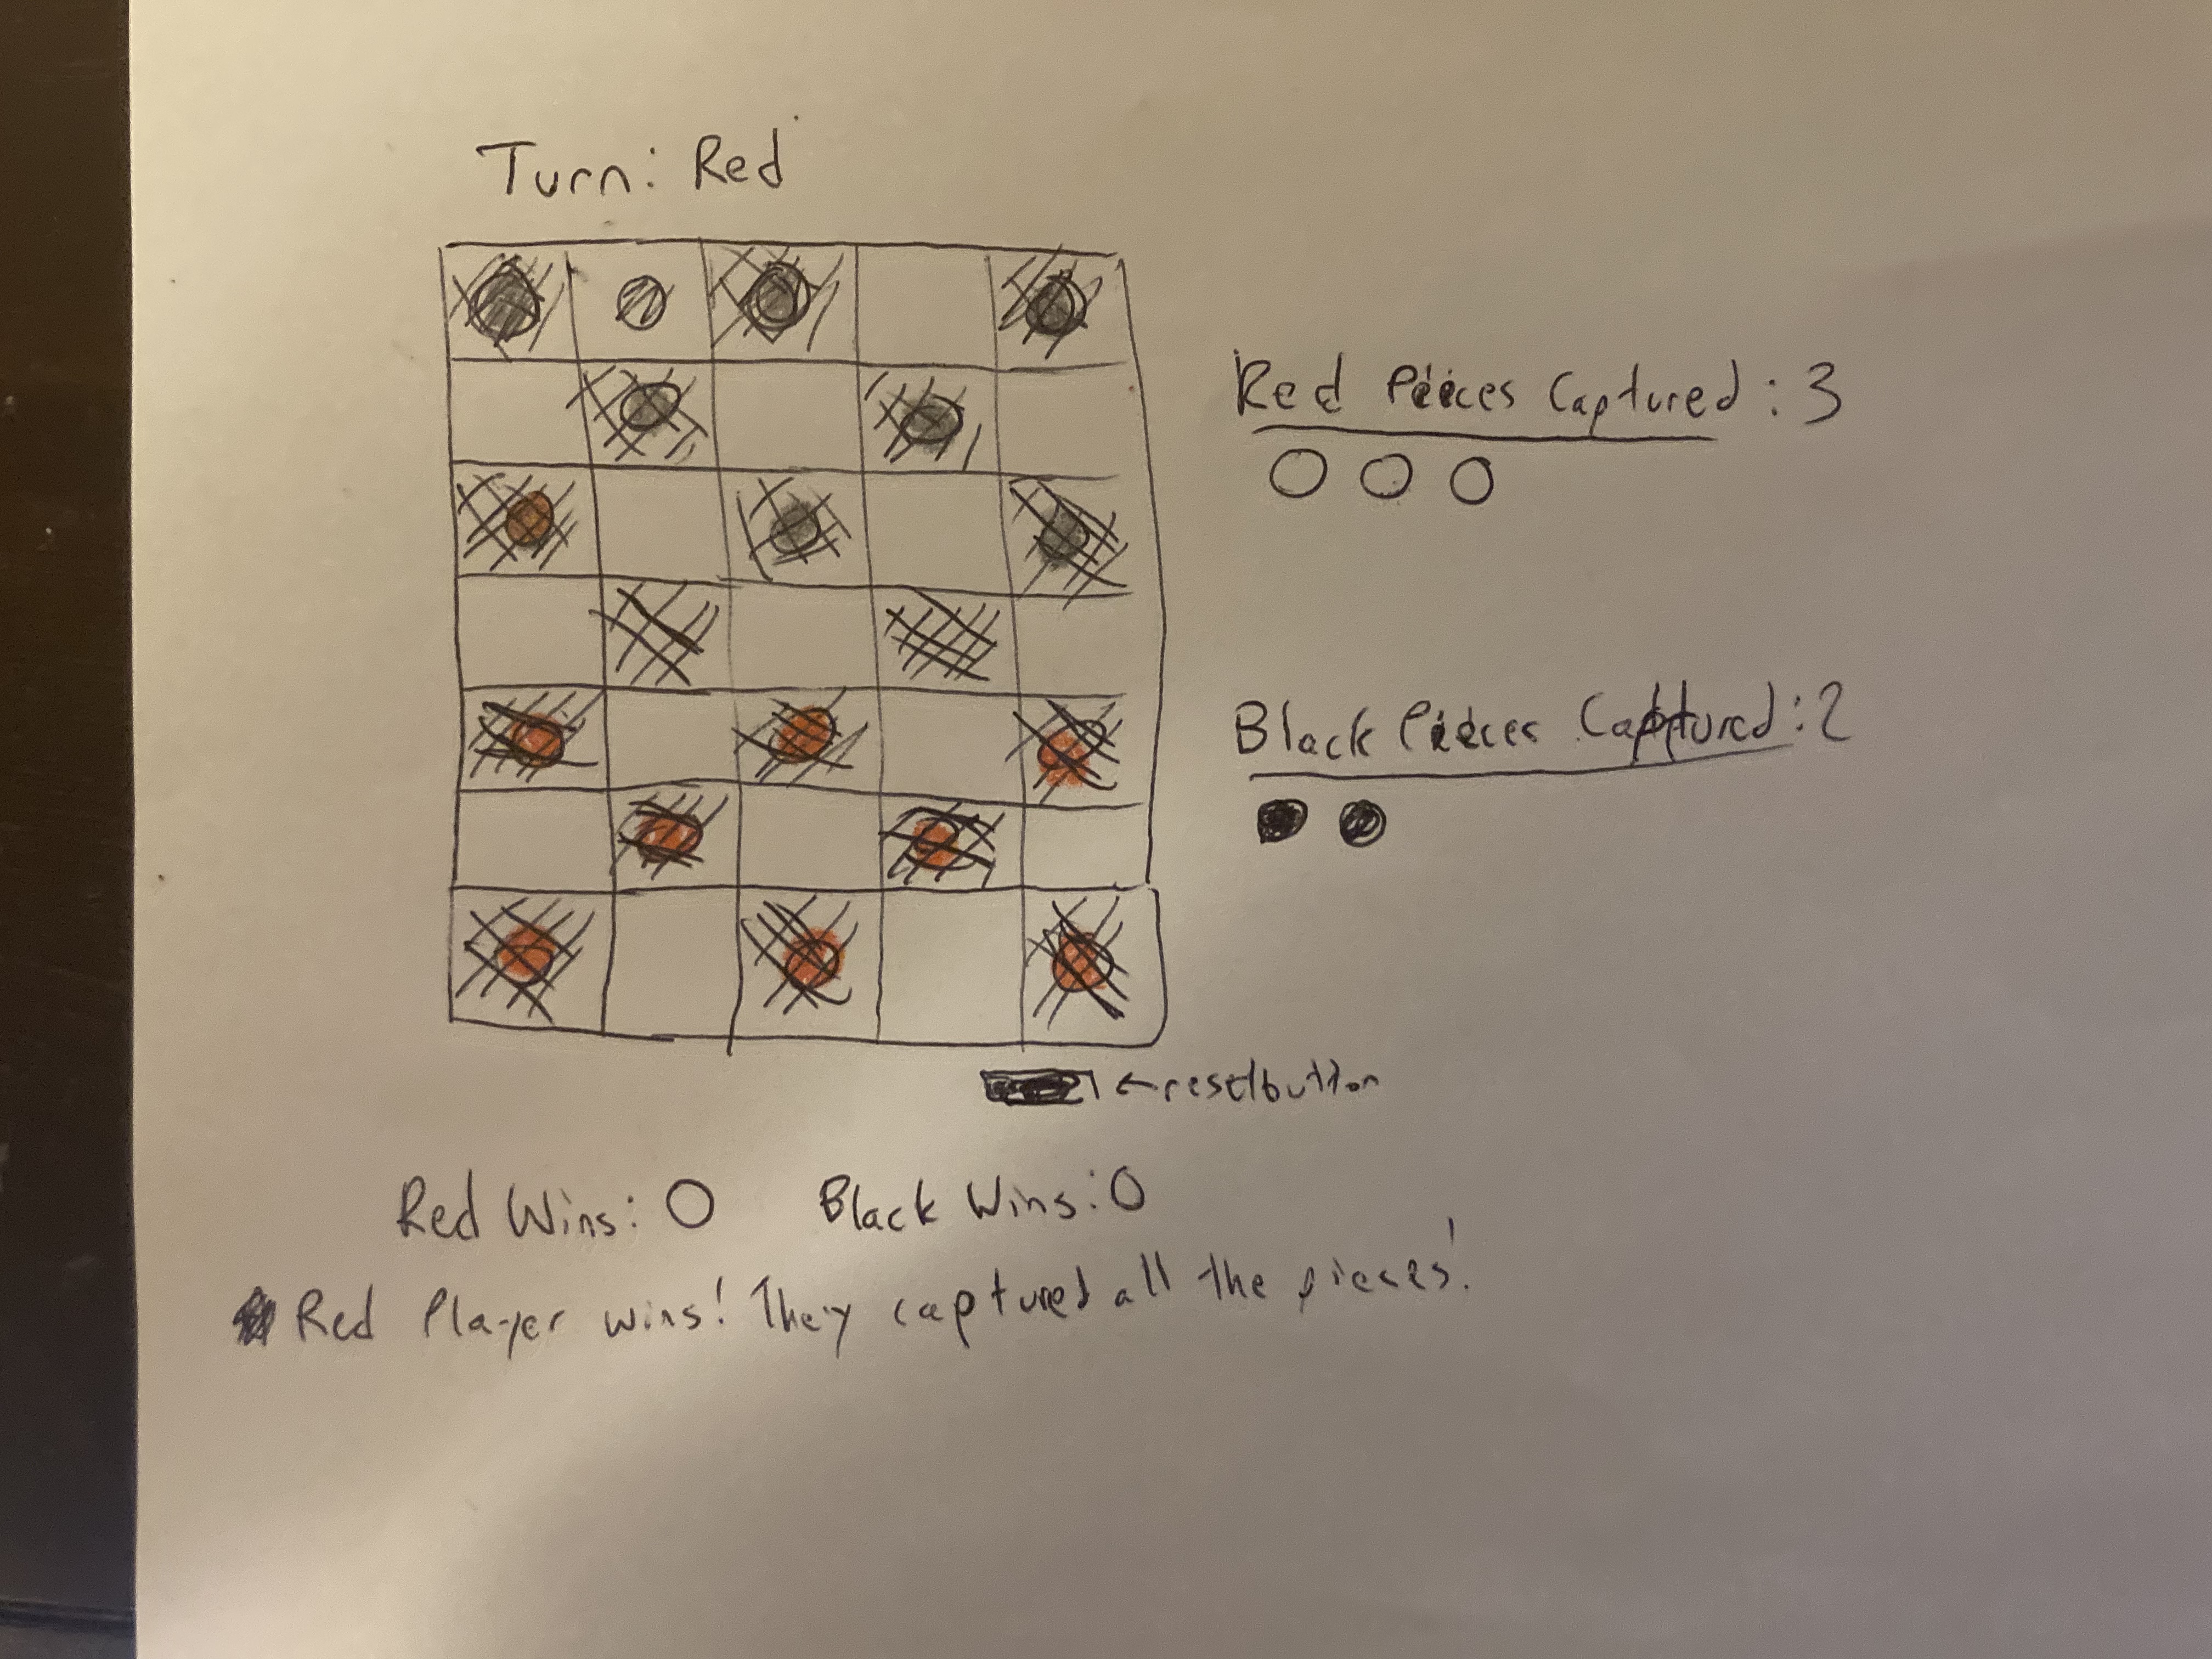 Turn: Red
Red Pieces Captured: 3
Black Pieces Captured: 2
← reset button
Red Wins: 0 Black Wins: 0
Red Player wins! They captured all the pieces!